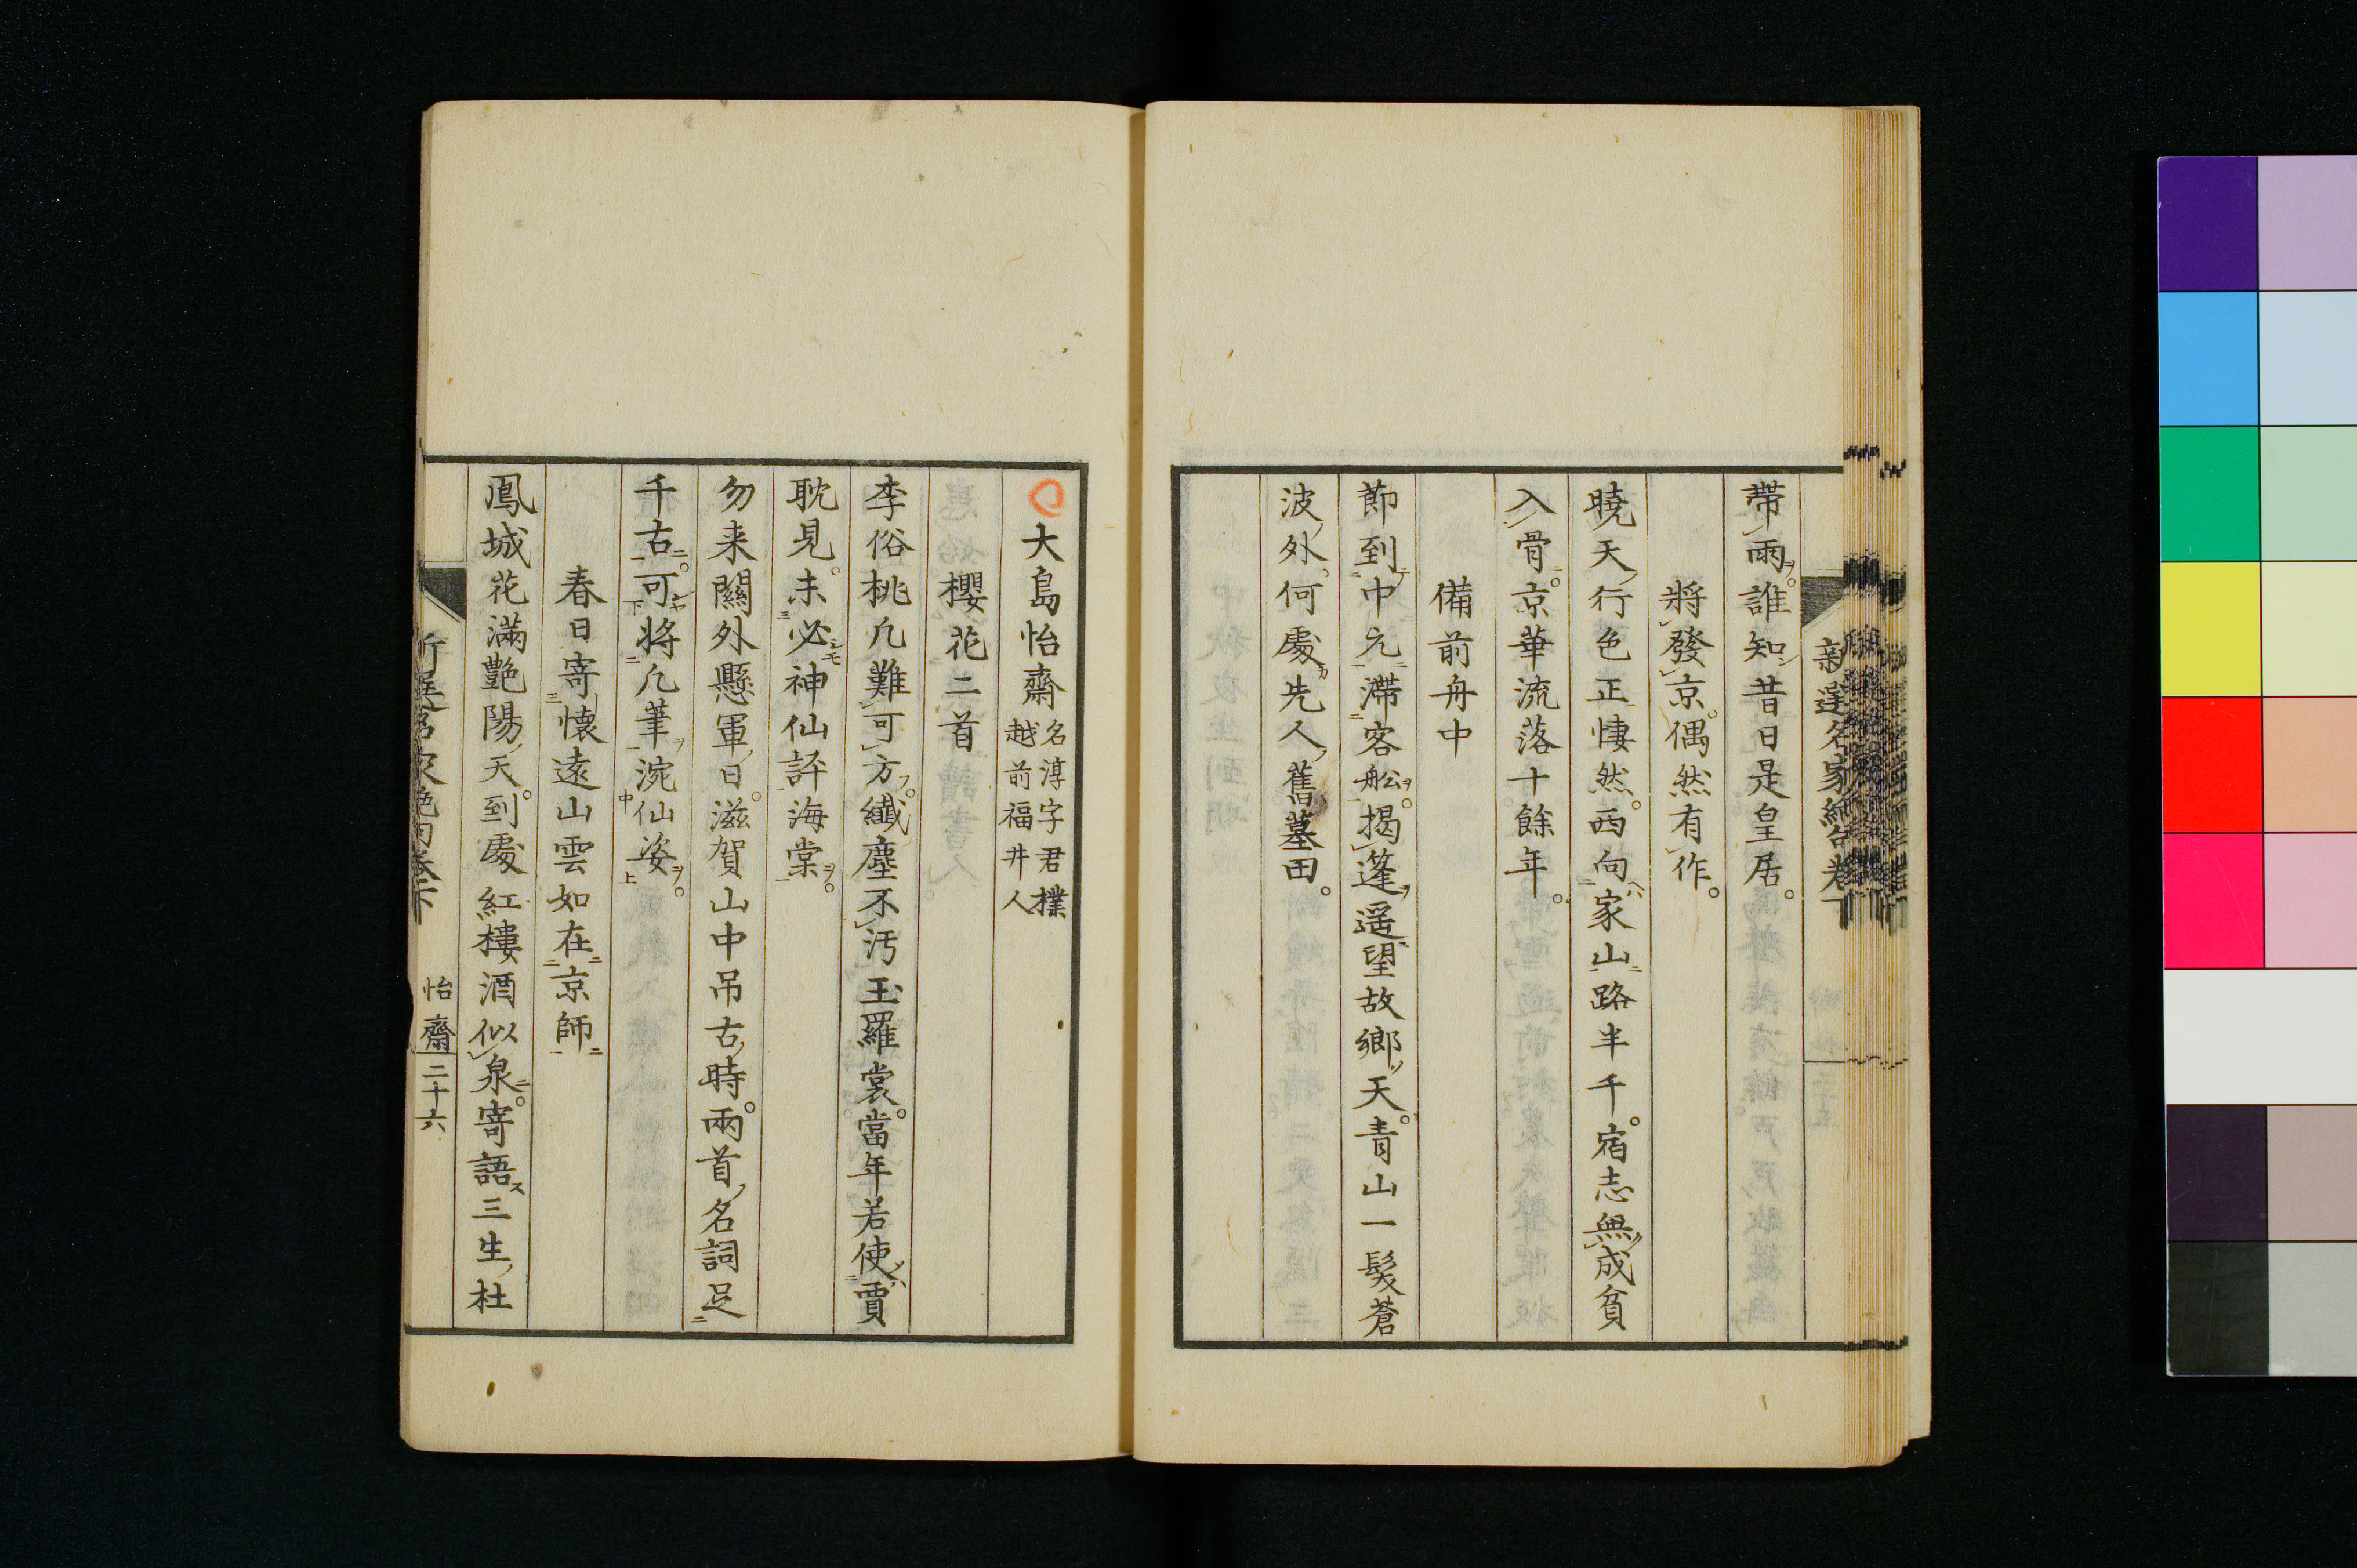 新選名家絶句巻下
帶雨誰知昔日是皇居
將發京偶然有作
曉天行色正悽然西向家山路半千宿志無成貧
入骨京華流落十餘年
備前舟中
節到中元滯客舩揭篷遥望故鄉天青山一髮蒼
波外何處先人舊墓田
大島怡齋名淳字君樸
越前福井人
櫻花二首
李俗桃凡難可方纖塵不汚玉羅裳當年若使賈
耽見未必神仙評海棠
勿来關外懸軍日滋賀山中吊古時兩首名詞足
千古可将凡筆涴仙姿
春日寄懷遠山雲如在京師
鳳城花滿艷陽天到處紅樓酒似泉寄語三生杜
新選名家絶句巻下
怡齋
二十六